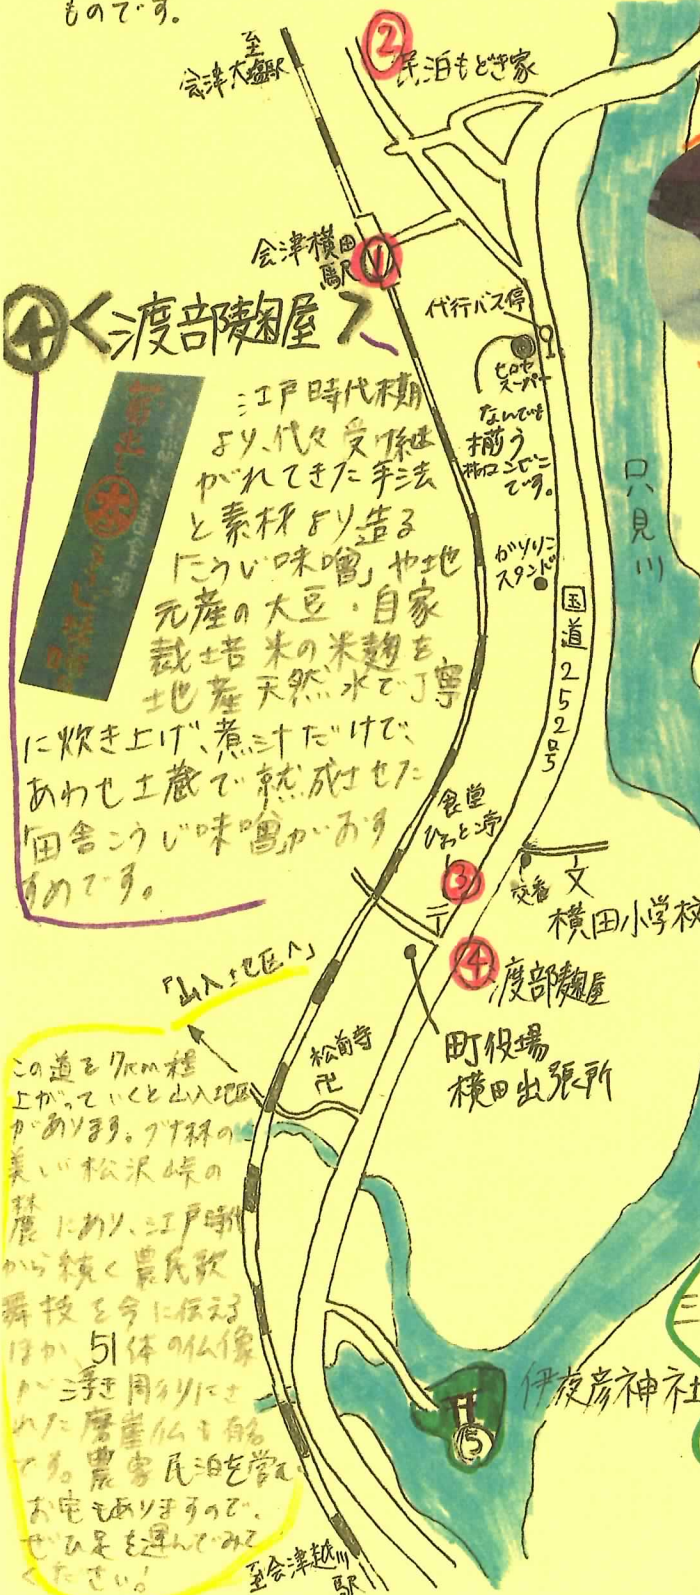 ものです。
至
会津大塩駅
②
民泊もどき家
会津横田
駅
①
代行バス停
ヒロセ
スーパー
なんでも
揃う
コンビニ
です。
④<渡部麹屋>
江戸時代末期
より、代々受け継
がれてきた手法
と素材より造る
「こうじ味噌」や地
元産の大豆・自家
栽培米の米麹を
地産天然水で丁寧
に炊き上げ、煮汁だけで、
あわせ土蔵で熟成させた
「田舎こうじ味噌」がおす
すめです。
ガソリン
スタンド
只見川
国道252号
食堂
ひょっと亭
③
〒
交番
文
横田小学校
④
渡部麹屋
町役場
横田出張所
「山入地区へ」
松前寺
卍
この道を7km程
上がっていくと山入地区
があります。ブナ林の
美しい松沢峠の
麓にあり、江戸時代
から続く農民歌
舞技を今に伝える
ほか、51体の仏像
が浮き周りにさ
れた磨崖仏も有名
です。農家民泊を営む
お宅もありますので、
ぜひ足を運んでみて
ください!
伊夜彦神社
⑤
至会津越川
駅